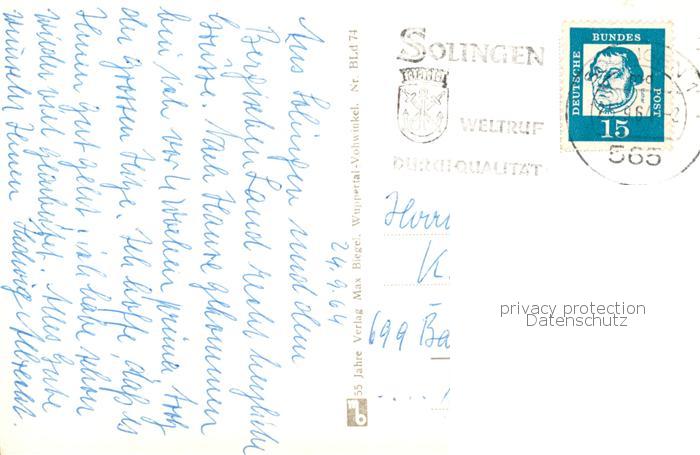 Aus Solingen und dem
Bergischen Land recht herzliche
Grüsse. Nach Hause gekommen
bin ich vor 4 Wochen prima trotz
der grossen Hitze. Ich hoffe, daß es
Ihnen gut geht. ich habe schon
wieder viel gearbeitet. Alles Gute
wünscht Ihnen Hedwig Albrecht.
24.9.64
55 Jahre Verlag Max Biegel, Wuppertal-Vohwinkel. Nr. BLd 74
SOLINGEN
WELTRUF
DURCH QUALITÄT
DEUTSCHE BUNDES POST
15
565
Herrn
K.
699 Ba
privacy protection
Datenschutz